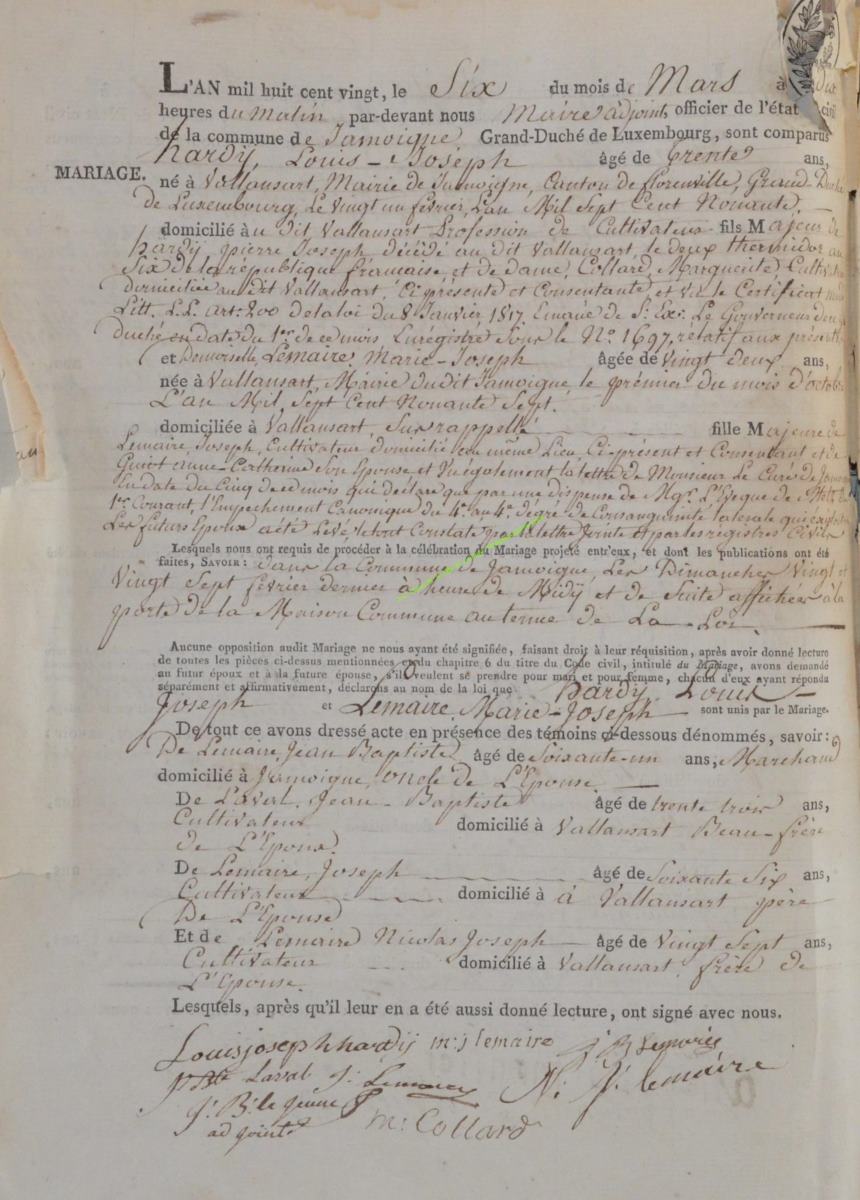 L'AN mil huit cent vingt, le Six du mois de Mars à dix
heures du Matin par-devant nous Maire adjoint, officier de l'état civil
de la commune de Jamoigne Grand-Duché de Luxembourg, sont comparus
MARIAGE.
hardy, Louis-Joseph âgé de trente ans,
né à Vallansart, Mairie de Jamoigne, Canton de florenville, Grand-Duché
de Luxembourg, Le Vingt un février, L'an Mil Sept Cent Nonante.
domicilié au dit Vallansart Profession de Cultivateur fils Majeur de
hardÿ, pierre Joseph décédé au dit Vallansart, le deux thermidor an
Six de la république française et de dame, Collard, Marguerite, Cultivatrice
domiciliée au dit Vallansart, Ci présente et Consentante et Vu le Certificat
Litt. L.L. art: 200 de la loi du 8 Janvier 1817 Emané de S. Ex. Le Gouverneur du
duché en date du 1er de ce mois Enrégistré sous le No. 1697, rélatif aux présents
et Demoiselle, Lemaire, Marie-Joseph âgée de Vingt deux ans,
née à Vallansart, Mairie du dit Jamoigne le prémier du mois d'octobre
L'an Mil, Sept Cent Nonante Sept.
domiciliée à Vallansart, Sus rappellé fille Majeure de
Lemaire, Joseph, Cultivateur domicilié au même Lieu, Ci-présent et Consentant et de
Guiot anne-Catherine Son Epouse et Vu également la lettre de Monsieur Le Curé de Jamoigne
En date du Cinq de ce mois qui déclare que par une dispense de Mgr. L'Eveque de Metz du
1er Courant, l'Empechement Canonique du 4e. au 4e. degré de Consanguinité laterale qui existoit
Les futurs Epoux a été Levé, le tout Constaté par la lettre Jointe et par les registres Civils
Lesquels nous ont requis de procéder à la célébration du Mariage projeté entr'eux, et dont les publications ont été
faites, SAVOIR: dans la Commune de Jamoigne, Les Dimanches Vingt et
Vingt Sept février dernier à heure de Midÿ et de Suite affichées à la
porte de la Maison Commune au terme de La Loi.
Aucune opposition audit Mariage ne nous ayant été signifiée, faisant droit à leur réquisition, après avoir donné lecture
de toutes les pièces ci-dessus mentionnées et du chapitre 6 du titre du Code civil, intitulé du Mariage, avons demandé
au futur époux et à la future épouse, s'ils veulent se prendre pour mari et pour femme, chacun d'eux ayant répondu
séparément et affirmativement, déclarons au nom de la loi que hardÿ, Louis-
Joseph et Lemaire, Marie-Joseph sont unis par le Mariage.
De tout ce avons dressé acte en présence des témoins ci-dessous dénommés, savoir:
De Lemaire, Jean Baptiste âgé de Soixante-un ans, Marchand
domicilié à Jamoigne, oncle de L'Epouse.
De Laval, Jean-Baptiste âgé de trente trois ans,
Cultivateur domicilié à Vallansart Beau-frère
de L'Epoux.
De Lemaire, Joseph âgé de Soixante Six ans,
Cultivateur domicilié à à Vallansart père
De L'Epouse
Et de Lemaire Nicolas Joseph âgé de Vingt Sept ans,
Cultivateur domicilié à Vallansart, frère de
L'Epouse.
Lesquels, après qu'il leur en a été aussi donné lecture, ont signé avec nous.
Louis joseph hardÿ m: j lemaire
Laval N. J. lemaire
J. B. le jeune
adjoint m: Collard